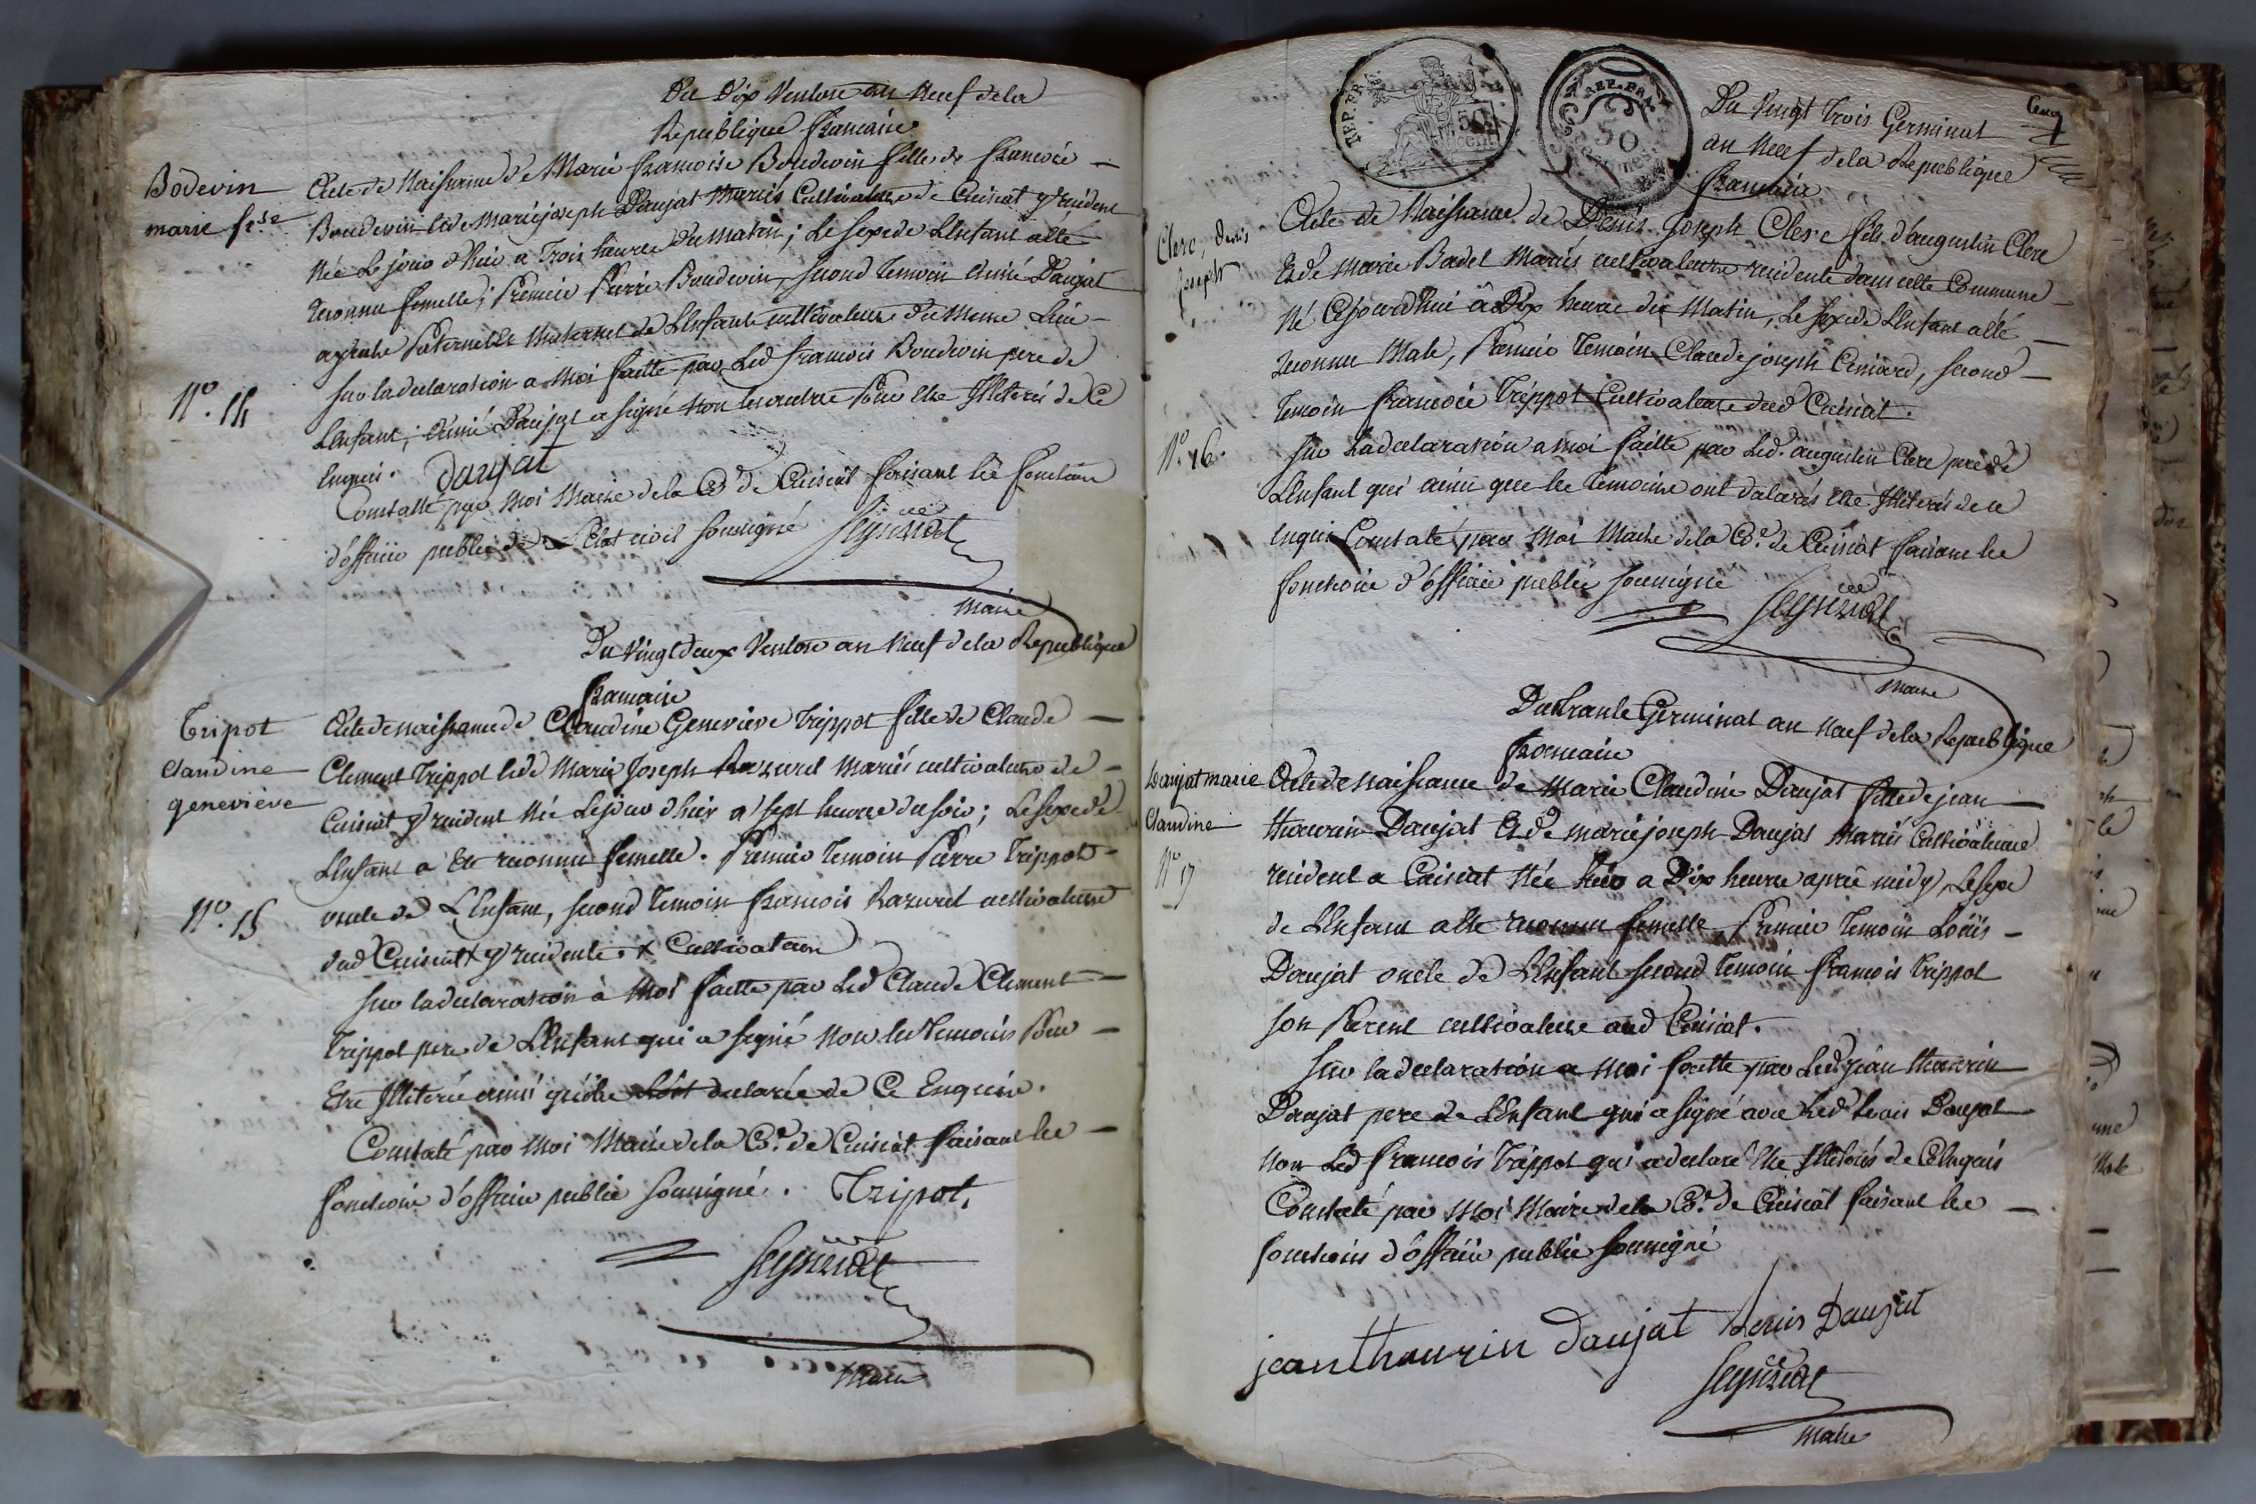 Du Dix Ventose an Neuf de la
Republique francaise
Bodevin
marie fr.se
Acte de Naissance de Marie francoise Boudevin fille de francois
Boudevin et de Marie joseph Daujat Mariés Cultivateurs de Cuisiat y resident
Née Le jour d'hier a Trois heures du Matin; Le sexe de L'Enfant a été
reconnu femelle; Premier Pierre Boudevin, second Temoin Aimé Daujat
ayeuls Paternel et Maternel de L'Enfant cultivateurs du Meme Lieu
N°. 14
sur la declaration a Moi faitte par Led francois Boudevin pere de
L'Enfant; Aimé Daujat a signé Non les autres Pour Etre Illiterés de Ce
Enquis. daujat
Constatté par Moi Maire de la C.e de Cuisiat faisant les fonctions
d'officier public de l'Etat civil soussigné
Maire
Du Vingt deux Ventose an Neuf de la Republique
francaise
Tripot
claudine
geneviève
Acte de naissance de Claudine Genevieve Trippot fille de Claude
Clement Trippot et de Marie Joseph Razurel Mariés cultivateurs de
Cuisiat y resident Née Le jour d'hier a sept heures du soir; Le sexe de
L'Enfant a Eté reconnu femelle. Premier Temoin Pierre Trippot
N°. 15
oncle de L'Enfant, second Temoin francois Razurel cultivateurs
dud Cuisiat x y residents. x Cultivateurs
sur la declaration à Moi faitte par Led Claude Clement
Trippot pere de L'Enfant qui a signé Non les Temoins Pour
Etre Illiterés ainsi qu'ils declarée de Ce Enquis.
Constaté par Moi Maire de la C.e de Cuisiat faisant les
fonctions d'officier public soussigné. Tripot,
Maire
REP. FRA.
50
REP. FRA.
50
Cenq
Du Vingt Trois Germinal
an Neuf de la Republique
francaise
Clerc, Denis
Joseph
Acte de Naissance de Denis Joseph Clerc fils d'augustin Clerc
Et de Marie Badet Mariés cultivateurs residents dans cette Commune
Né Cejourd'hui à Dix heures du Matin, Le sexe de L'Enfant a été
reconnu Male, Premier Temoin Claude joseph , second
Temoin francois Trippot Cultivateurs dud Cuisiat.
N°. 16.
sur La declaration a moi faitte par Led. augustin Clerc pere de
L'Enfant qui ainsi que les Temoins ont dalarés Etre Illiterés de ce
enquis Constaté par Moi Maire de la C.e de Cuisiat faisant les
fonctions d'officier public soussigné
Maire
Du Trante Germinal an Neuf de la Republique
francaise
Daujat marie
Claudine
Acte de Naissance de Marie Claudine Daujat fille de jean
thaurin Daujat Et de marie joseph Daujat Mariés Cultivateurs
N° 17
resident a Cuisiat Née hier a Dix heures apres midy, Le sexe
de L'Enfant a eté reconnu femelle, Premier Temoin Loüis
Daujat oncle de L'Enfant second Temoin francois Trippot
son Parent cultivateurs aud Cuisiat.
sur la declaration a Moi faitte par Led jean thaurin
Daujat pere de L'Enfant qui a signé avec Led Louis Daujat
Non Led francois Trippot qui a declaré Etre Illiterés de Ce Enquis
Constaté par Moi Maire de la C.e de Cuisiat faisant les
fonctions d'officier public soussigné
jean thaurin daujat Louis Daujat
Maire